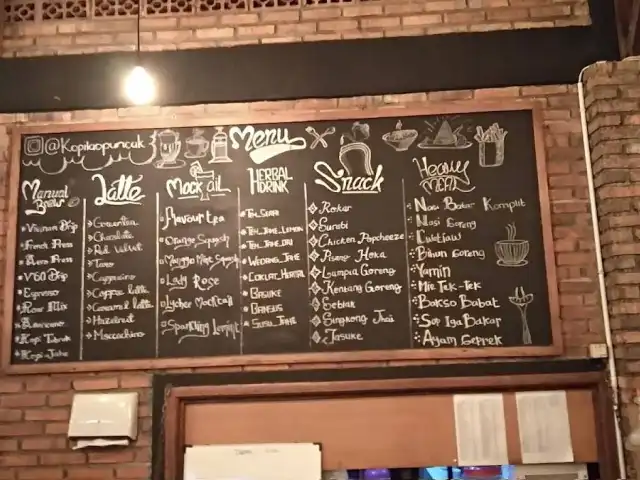 @Kopilaopuncuk
Menu
Manual Brew
Vietnam Drip
French Press
Aero Press
V60 Drip
Espresso
Rose Mix
Americano
Kopi Tubruk
Kopi Jahe
Latte
Greentea
Chocolate
Red Velvet
Taro
Cappucino
Coffee latte
Caramel latte
Hazelnut
Moccachino
Mocktail
Flavour tea
Orange Squash
Mango Mint Squash
Lady Rose
Lychee Mocktail
Sparkling
HERBAL DRINK
TEH SUSU
TEH JAHE LEMON
WEDANG JAHE
COKLAT HERBAL
BASUKE
BANSUS
SUSU JAHE
Snack
Rokar
Surabi
Chicken Popcheeze
Pisang Hoka
Lumpia Goreng
Kentang Goreng
Seblak
Singkong Thai
Jasuke
Heavy MEAL
Nasi Bakar Komplit
Nasi Goreng
Kwetiaw
Bihun Goreng
Yamin
Mie Tek-Tek
Bakso Babat
Sop Iga Bakar
Ayam Geprek